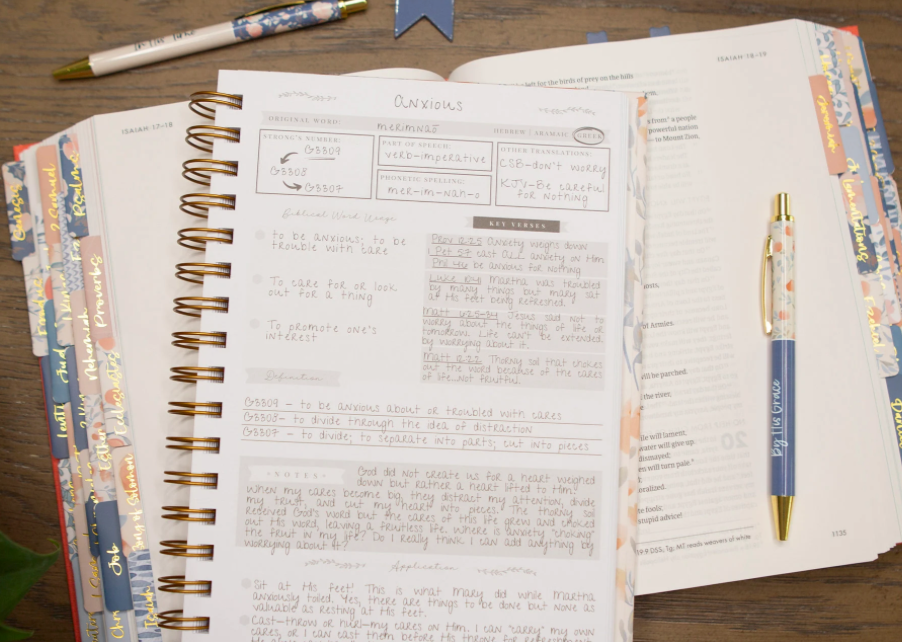 ISAIAH 17-18
ISAIAH 18-19
left for the birds of prey on the hills
from" a people
powerful nation
Mount Zion.
of Armies.
will be parched.
the river,
will lament,
water will give up.
dismayed;
will turn pale."
20
fools;
stupid advice!
19:9 DSS, Tg; MT reads weavers of white
1135
by His Grace
Genesis
Exodus
Levit
Jud
2 Samuel
Psalms
Proverbs
Nehemiah
Esther
Ecclesiastes
Job
Song of Solomon
Isaiah
Lamentations
Ezekiel
anxious
ORIGINAL WORD: merimnaō HEBREW | ARAMAIC | GREEK
STRONG'S NUMBER:
G3309
G3308
G3307
PART OF SPEECH:
verb-imperative
PHONETIC SPELLING:
mer-im-nah-o
OTHER TRANSLATIONS:
CSB-don't worry
KJV-Be careful
for nothing
Biblical Word Usage
to be anxious; to be
trouble with care
To care for or look
out for a thing
To promote one's
interest
KEY VERSES
Prov 12:25 Anxiety weighs down
1 Pet 5:7 cast all anxiety on Him
Phil 4:6 be anxious for nothing
Luke 10:41 Martha was troubled
by many things but mary sat
at His feet being refreshed.
Matt 6:25-34 Jesus said not to
worry about the things of life or
tomorrow. Life can't be extended
by worrying about it.
Matt 13:22 Thorny soil that chokes
out the word because of the cares
of life...Not fruitful.
Definition
G3309 - to be anxious about or troubled with cares
G3308- to divide through the idea of distraction
G3307 - to divide; to separate into parts; cut into pieces
NOTES
God did not create us for a heart weighed
down but rather a heart lifted to Him!
When my cares become big, they distract my attention, divide
my trust, and cut my heart into pieces. The thorny soil
received God's word but the cares of this life grew and choked
out His word, leaving a fruitless life. Where is anxiety "choking"
the fruit in my life? Do I really think I can add anything by
worrying about it?
Application
Sit at His feet! This is what Mary did while Martha
anxiously toiled. Yes, there are things to be done but none as
valuable as resting at His feet.
Cast-throw or hurl-my cares on Him. I can "carry" my own
cares, or I can cast them before His throne for refreshment